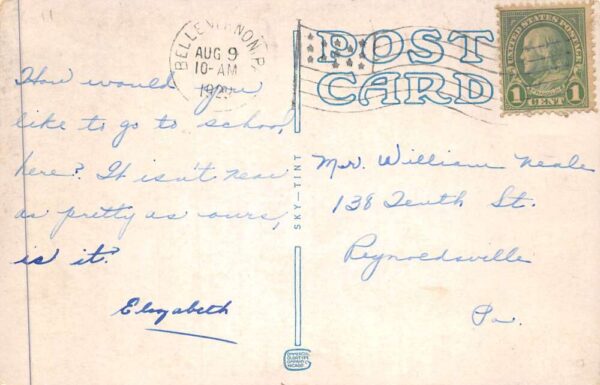 11
BELLE VERNON, PA.
AUG 9
10-AM
POST
CARD
UNITED STATES POSTAGE
FRANKLIN
1 CENT 1
How would you
like to go to school
here? It isn't near
as pretty as ours,
is it?
Elizabeth
SKY-TINT
Mr. William Neale
138 Tenth St.
Reynoldsville
Pa.